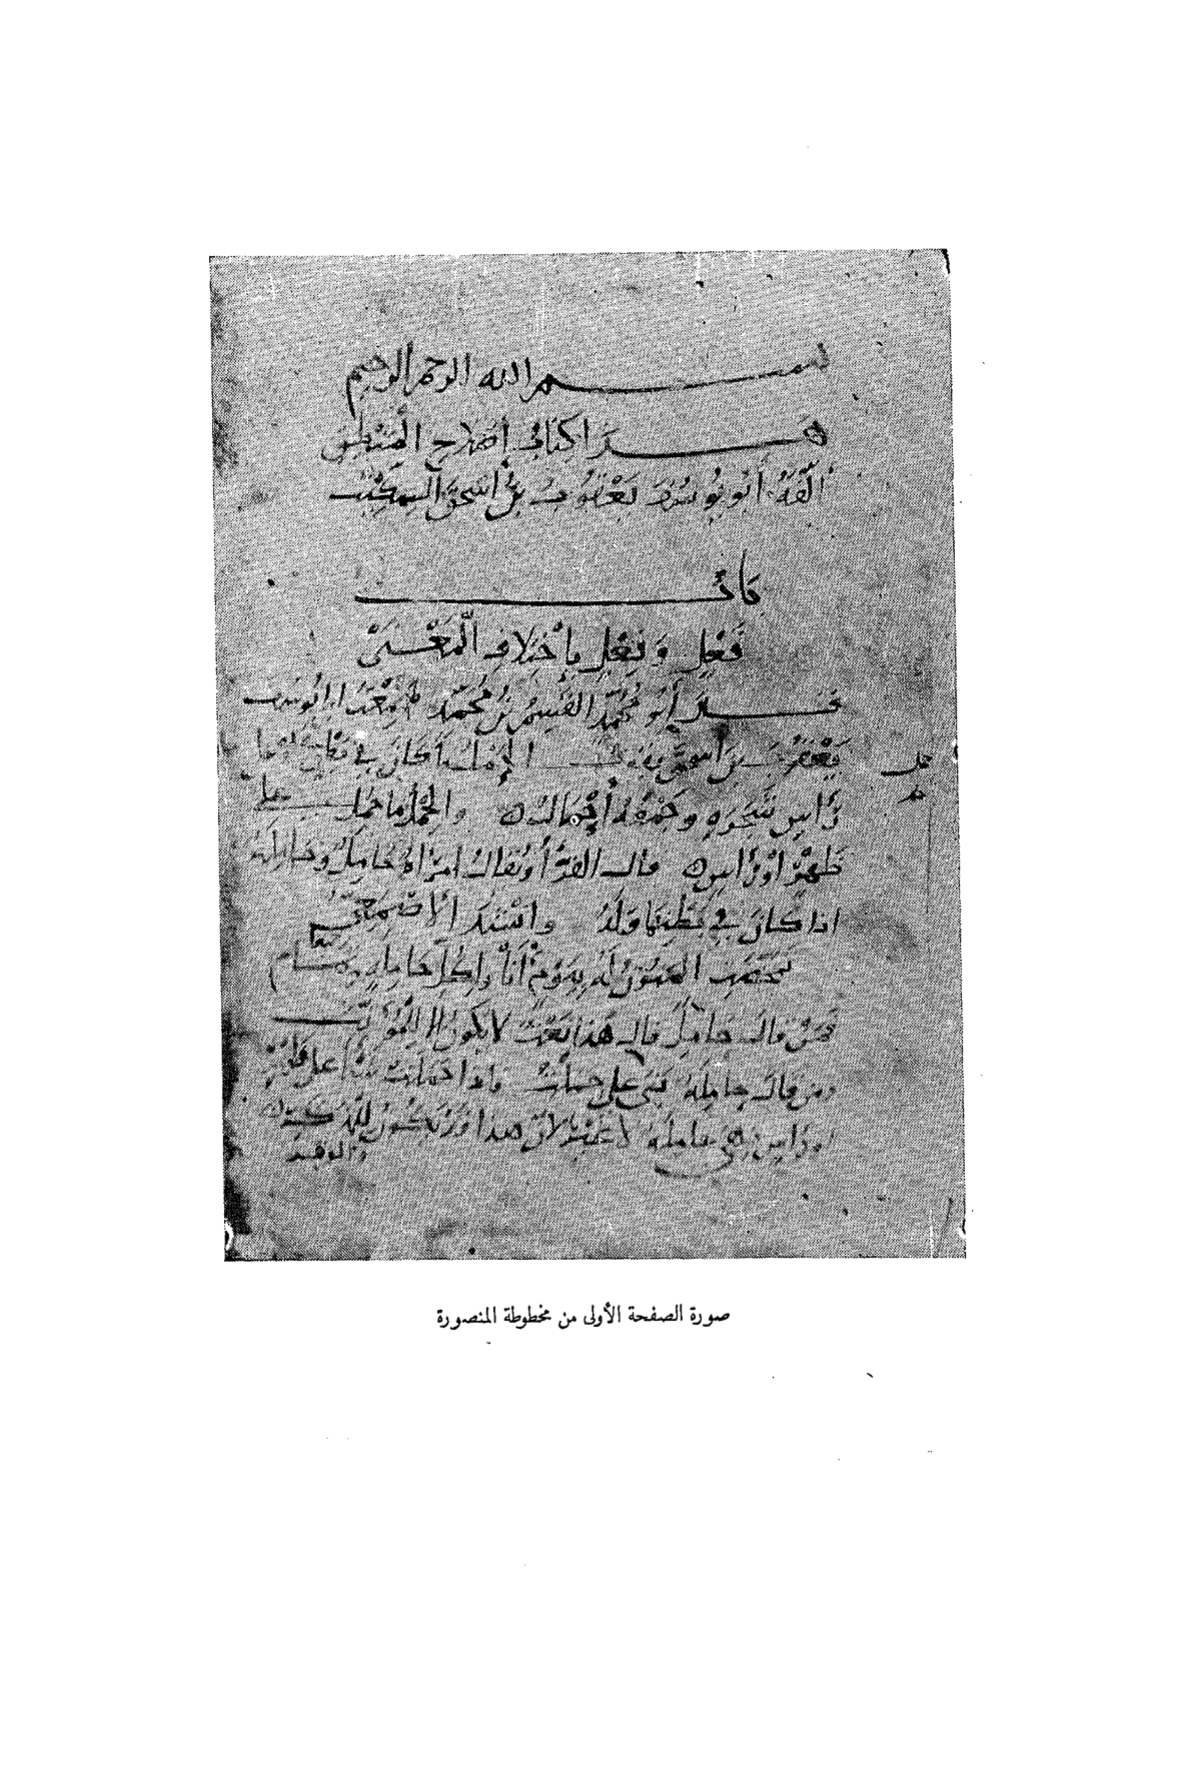 بسم الله الرحمن الرحيم
هذا كتاب إصلاح المنطق
ألفه أبو يوسف يعقوب بن إسحق السكيت
باب
فَعْلٍ وَفِعْلٍ باختلاف المعنى
أبو محمد القسم بن محمد
يعقوب بن اسحق يقول الحمل ما كان في بطن او على
حمل
رأس شجرة وجمعه أحمال والحمل ما حمل على
ظهر او رأس قال الفرا ويقال امراة حامل وحاملة
اذا كان في بطنها ولد وانشد الأصمعي
تمخضت المنون له بيوم أنى ولكل حاملة تمام
فمن قال حامل قال هذا نعت لا يكون إلا للمؤنث
ومن قال حاملة بنى على حملت فاذا حملت شيئا على ظهر
او رأس فهي حاملة لا غير لأن هذا قد يكون للذكر
صورة الصفحة الأولى من مخطوطة المنصورة